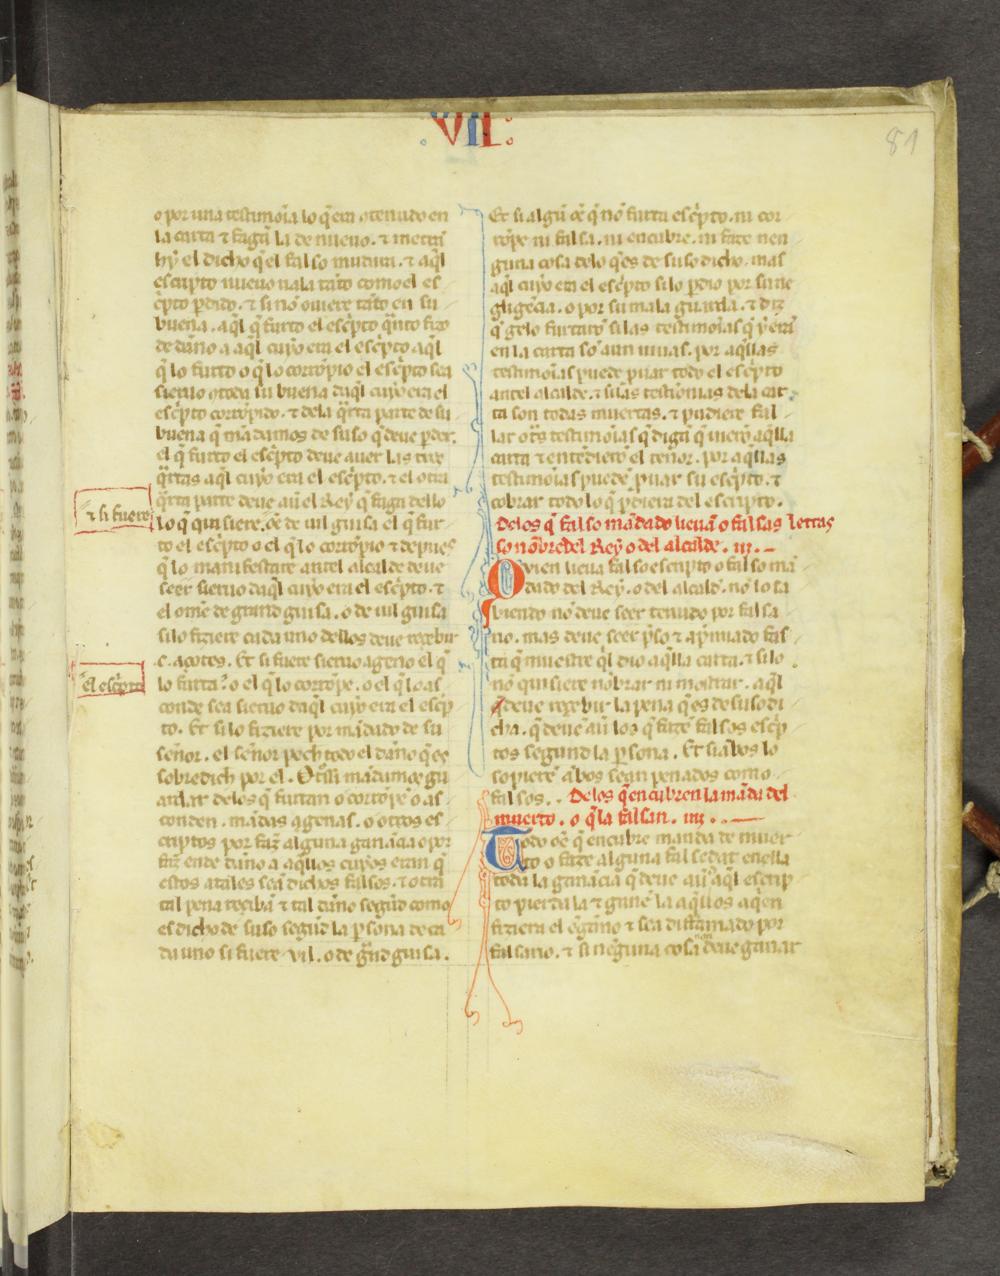 .VII.
81
o por una testimoĩa lo q̃ era ⁊ tenudo en
la carta ⁊ fagã la de nueuo. ⁊ metrã
hy el dicho q̃ el falso mudara. ⁊ aq̃l
escripto nueuo uala tãto como el es
cp̃to p̃dido. ⁊ si nõ ouiere tãto en su
buena. aq̃l q̃ furto el escp̃to q̃nto fizo
de dãno a aq̃l cuyo era el escp̃to aq̃l
q̃ lo furto o q̃ lo corrõpio el escp̃to sea
sieruo cõ toda su buena daq̃l cuyo era el
escp̃to corrõpido. ⁊ dela q̃rta parte de su
buena q̃ mãdamos de suso q̃ deue p̃der.
el q̃ furto el escp̃to deue auer las tres
q̃rtas aq̃l cuyo era el escp̃to. ⁊ el otra
q̃rta parte deue auẽ el Rey q̃ faga dello
⁊ si fuere
lo q̃ quisiere. oẽ de uil guisa el q̃ fur
to el escp̃to o el q̃ lo corrõpio ⁊ depues
q̃ lo manifestare antel alcalde deue
seer sieruo daq̃l cuyo era el escp̃to. ⁊
el ome de grand guisa. o de uil guisa
si lo fiziere cada uno dellos deue reçebir
.c. açotes. Et si fuere sieruo ageno el q̃
El escp̃to
lo furta? o el q̃ lo corrõpe. o el q̃ lo as
conde sea sieruo daq̃l cuyo era el escp̃
to. Et si lo fiziere por mãdado de su
señor. el señor pech todo el dãno q̃ es
sobredich por el. Otrssi mãdamos gu
ardar delos q̃ furtan o corrõpẽ o as
conden. mãdas agenas. o otros es
criptos por faz̃ alguna ganãcia o por
faz̃ ende dãno a aq̃llos cuyos eran q̃
estos atales seã dichos falsos. ⁊ otra
tal pena reçibã ⁊ tal dãno segũd como
es dicho de suso segũd la p̃sona de ca
da uno si fuere uil. o de g̃nd guisa.
Et si algũ oẽ q̃ nõ furta escp̃to. ni cor
rõpe ni falsa. ni encubre. ni faze nen
guna cosa delo q̃ es de suso dicho. mas
aq̃l cuyo era el escp̃to si lo p̃dio por su ne
gligẽcia. o por su mala guarda. ⁊ diz̃
q̃ gelo furtarõ si las testimoĩas q̃ y erã
en la carta sõ aun uiuas. por aq̃llas
testimoĩas puede p̃uar todo el escp̃to
antel alcalde. ⁊ si las testimoĩas dela car
ta son todas muertas. ⁊ pudiere fal
lar ot̃s testimoĩas q̃ digã q̃ uierõ aq̃lla
carta ⁊ entẽdierõ el tenor. por aq̃llas
testimoĩas puede p̃uar su escp̃to. ⁊
cobrar todo lo q̃ p̃diera del escripto.
Delos q̃ falso mãdado lieuã o falsas lettras
so nõbre del Rey o del alcalde. iii.
Quien lieua falso escripto o falso mã
dado del Rey. o del alcalde. no lo sa
biendo nõ deue seer tenudo por falsa
rio. mas deue seer p̃so ⁊ ap̃miado fas
ta q̃ muestre q̃l dio aq̃lla carta. ⁊ si lo
nõ quisiere nõbrar ni mostrar. aq̃l
deue reçebir la pena q̃ es de suso di
cha. q̃ deuẽ auẽ los q̃ fazẽ falsos escp̃
tos segund la p̃sona. Et si ãbos lo
sopierẽ ãbos sean penados como
falsos. Delos q̃ encubren la mãda del
muerto. o q̃ la falsan. iiii.
Todo oẽ q̃ encubre manda de muer
to o faze alguna falsedat en ella
toda la ganãcia q̃ deue auẽ aq̃l escrip
to pierda la ⁊ ganẽ la aq̃llos a q̃en
fiziera el ẽgãno ⁊ sea disfamado por
falsario. ⁊ si nẽguna cosa deue ganar